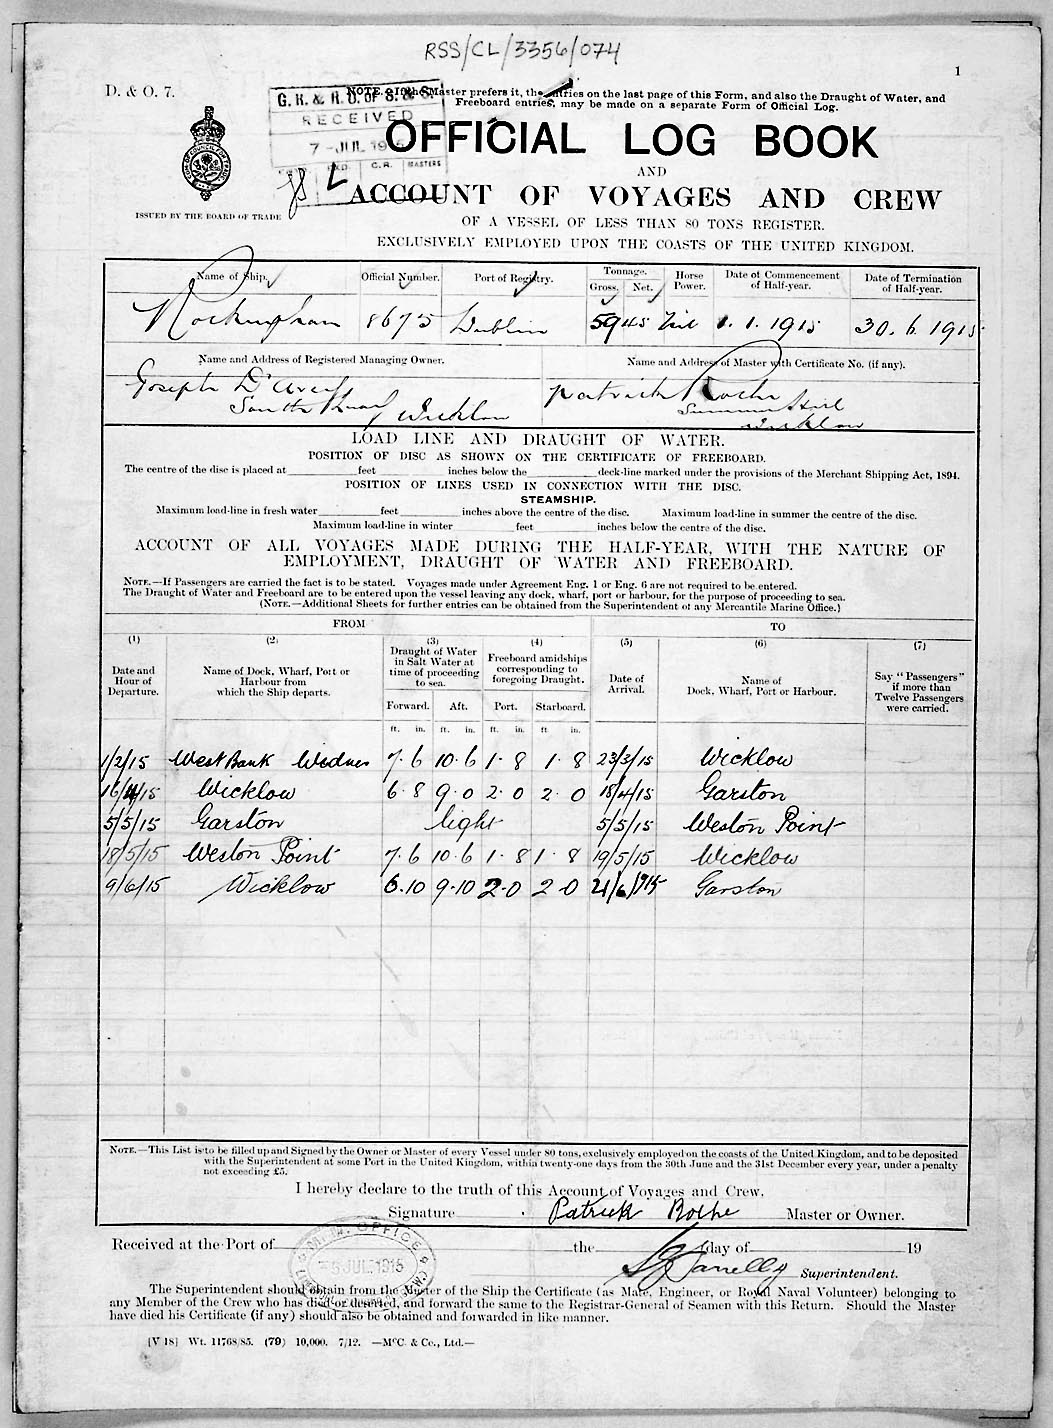 RSS/CL/3356/074
1
D. & O. 7.
NOTE.—If the Master prefers it, the entries on the last page of this Form, and also the Draught of Water, and
Freeboard entries, may be made on a separate Form of Official Log.
G. R. & R. O. OF S. & S.
RECEIVED
7 - JUL 1915
C. R. MASTERS
OFFICIAL LOG BOOK
AND
ACCOUNT OF VOYAGES AND CREW
ISSUED BY THE BOARD OF TRADE
OF A VESSEL OF LESS THAN 80 TONS REGISTER.
EXCLUSIVELY EMPLOYED UPON THE COASTS OF THE UNITED KINGDOM.
Name of Ship. Official Number. Port of Registry. Tonnage. Gross. Net. Horse Power. Date of Commencement of Half-year. Date of Termination of Half-year.
Rockingham 8675 Dublin 59 45 Nil 1.1.1915 30.6.1915
Name and Address of Registered Managing Owner. Name and Address of Master with Certificate No. (if any).
Joseph Patrick Roche
South Quay Wicklow Summer Hill
Wicklow
LOAD LINE AND DRAUGHT OF WATER.
POSITION OF DISC AS SHOWN ON THE CERTIFICATE OF FREEBOARD.
The centre of the disc is placed at feet inches below the deck-line marked under the provisions of the Merchant Shipping Act, 1894.
POSITION OF LINES USED IN CONNECTION WITH THE DISC.
STEAMSHIP.
Maximum load-line in fresh water feet inches above the centre of the disc. Maximum load-line in summer the centre of the disc.
Maximum load-line in winter feet inches below the centre of the disc.
ACCOUNT OF ALL VOYAGES MADE DURING THE HALF-YEAR, WITH THE NATURE OF
EMPLOYMENT, DRAUGHT OF WATER AND FREEBOARD.
NOTE.—If Passengers are carried the fact is to be stated. Voyages made under Agreement Eng. 1 or Eng. 6 are not required to be entered.
The Draught of Water and Freeboard are to be entered upon the vessel leaving any dock, wharf, port or harbour, for the purpose of proceeding to sea.
(NOTE.—Additional Sheets for further entries can be obtained from the Superintendent of any Mercantile Marine Office.)
FROM TO
(1) (2) (3) (4) (5) (6) (7)
Date and Hour of Departure. Name of Dock, Wharf, Port or Harbour from which the Ship departs. Draught of Water in Salt Water at time of proceeding to sea. Freeboard amidships corresponding to foregoing Draught. Date of Arrival. Name of Dock, Wharf, Port or Harbour. Say "Passengers" if more than Twelve Passengers were carried.
Forward. Aft. Port. Starboard.
ft. in. ft. in. ft. in. ft in.
1/2/15 West Bank Widnes 7.6 10.6 1.8 1.8 23/3/15 Wicklow
16/4/15 Wicklow 6.8 9.0 2.0 2.0 18/4/15 Garston
5/5/15 Garston light 5/5/15 Weston Point
18/5/15 Weston Point 7.6 10.6 1.8 1.8 19/5/15 Wicklow
9/6/15 Wicklow 6.10 9.10 2.0 2.0 21/6/1915 Garston
NOTE.—This List is to be filled up and Signed by the Owner or Master of every Vessel under 80 tons, exclusively employed on the coasts of the United Kingdom, and to be deposited
with the Superintendent at some Port in the United Kingdom, within twenty-one days from the 30th June and the 31st December every year, under a penalty
not exceeding £5.
I hereby declare to the truth of this Account of Voyages and Crew.
Signature Patrick Roche Master or Owner.
Received at the Port of the day of 19
OFFICE
JUL 1915
Superintendent.
The Superintendent should obtain from the Master of the Ship the Certificate (as Mate, Engineer, or Royal Naval Volunteer) belonging to
any Member of the Crew who has died or deserted, and forward the same to the Registrar-General of Seamen with this Return. Should the Master
have died his Certificate (if any) should also be obtained and forwarded in like manner.
[V 18] Wt. 11768/85. (79) 10,000. 7/12. —McC. & Co., Ltd.—